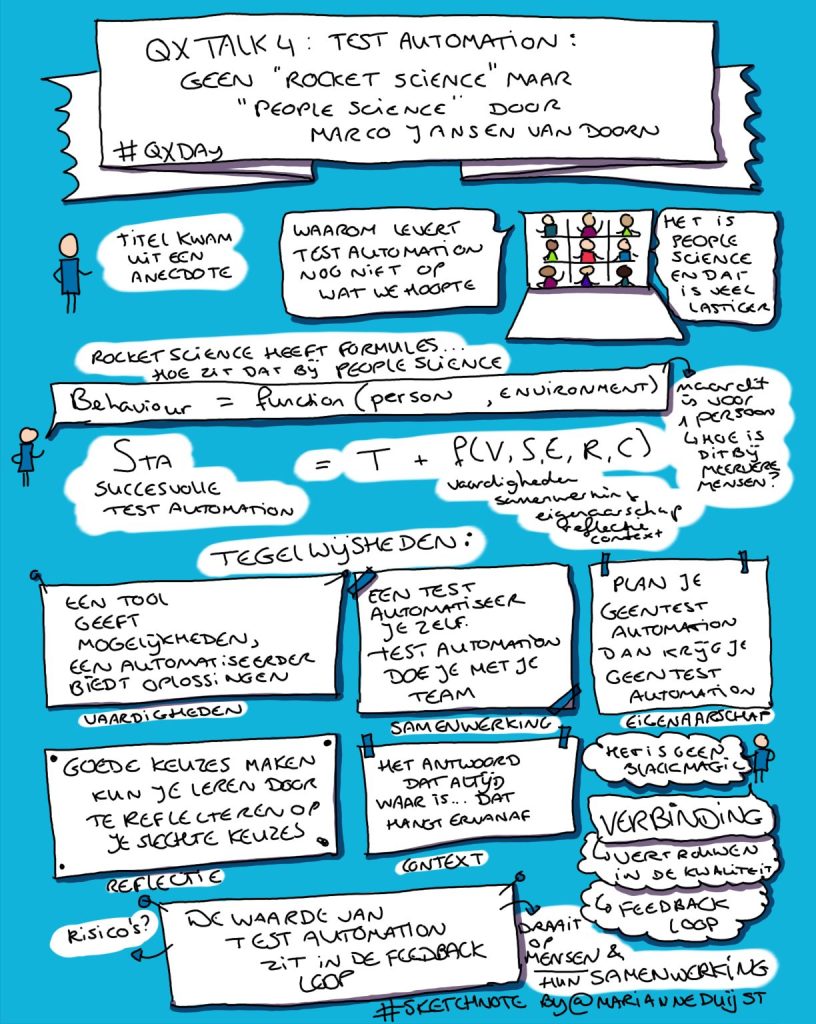 QX TALK 4: TEST AUTOMATION:
GEEN "ROCKET SCIENCE" MAAR
"PEOPLE SCIENCE" DOOR
MARCO JANSEN VAN DOORN
#QXDAY
TITEL KWAM
UIT EEN
ANECDOTE
WAAROM LEVERT
TEST AUTOMATION
NOG NIET OP
WAT WE HOOPTE
HET IS
PEOPLE
SCIENCE
EN DAT
IS VEEL
LASTIGER
ROCKET SCIENCE HEEFT FORMULES...
HOE ZIT DAT BIJ PEOPLE SCIENCE
Behaviour = function (person, environment)
MAAR DIT
IS VOOR
1 PERSOON
↳ HOE IS
DIT BIJ
MEERDERE
MENSEN?
STA = T + f(V, S, E, R, C)
SUCCESVOLLE
TEST AUTOMATION
vaardigheden
samenwerking
eigenaarschap
reflectie
context
TEGELWIJSHEDEN:
EEN TOOL
GEEFT
MOGELIJKHEDEN,
EEN AUTOMATISEERDER
BIEDT OPLOSSINGEN
VAARDIGHEDEN
EEN TEST
AUTOMATISEER
JE ZELF.
TEST AUTOMATION
DOE JE MET JE
TEAM
SAMENWERKING
PLAN JE
GEEN TEST
AUTOMATION
DAN KRIJG JE
GEEN TEST
AUTOMATION
EIGENAARSCHAP
GOEDE KEUZES MAKEN
KUN JE LEREN DOOR
TE REFLECTEREN OP
JE SLECHTE KEUZES
REFLECTIE
HET ANTWOORD
DAT ALTIJD
WAAR IS... DAT
HANGT ERVANAF
CONTEXT
HET IS GEEN
BLACK MAGIC
VERBINDING
↳ VERTROUWEN
IN DE KWALITEIT
↳ FEEDBACK
LOOP
RISICO'S?
DE WAARDE VAN
TEST AUTOMATION
ZIT IN DE FEEDBACK
LOOP
DRAAIT
OP
MENSEN &
HUN SAMENWERKING
#SKETCHNOTE BY @MARIANNEDUIJST